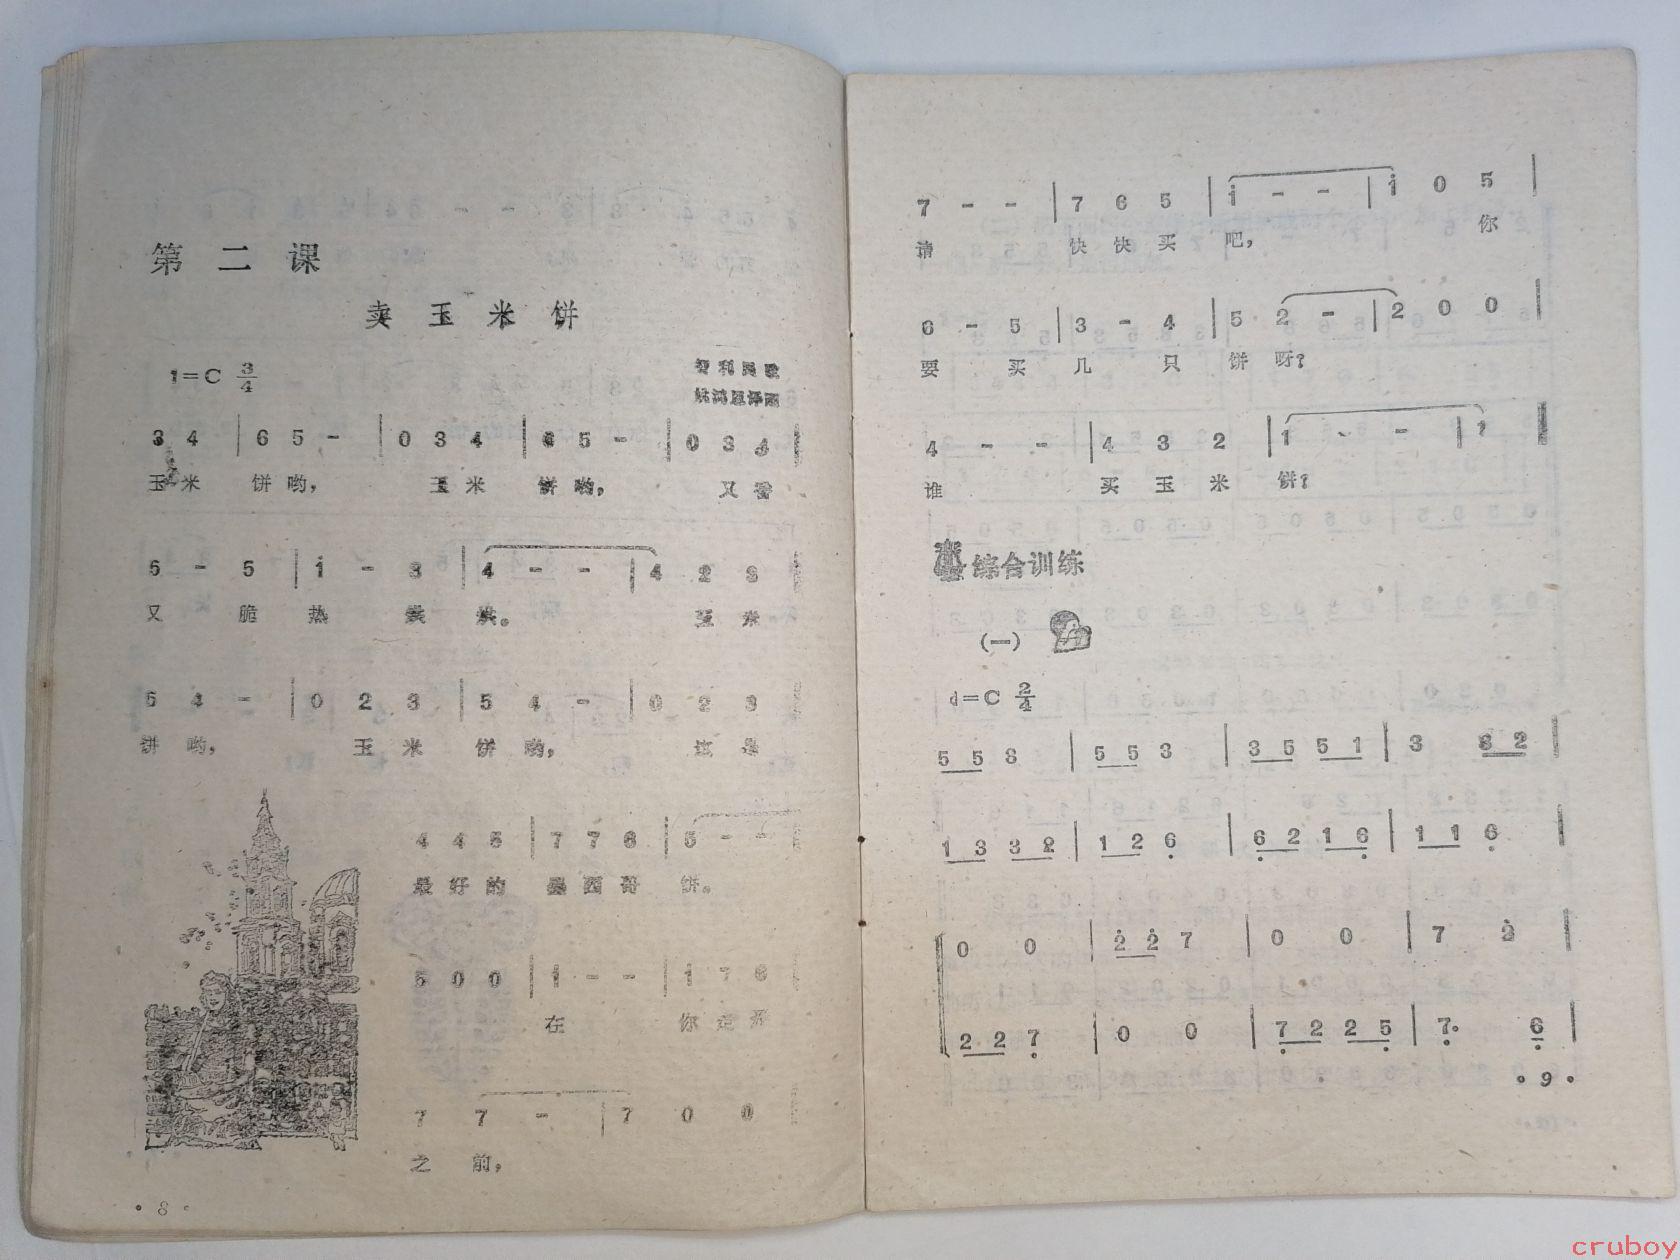 第二课
卖玉米饼
1=C 3/4
3 4 | 6 5 - | 0 3 4 | 6 5 - | 0 3 4 |
玉米 饼哟, 玉米 饼哟, 又香
5 - 5 | 1 - 3 | 4 - - | 4 2 3 |
又 脆 热 米
5 4 - | 0 2 3 | 5 4 - | 0 2 3 |
饼哟, 玉米 饼哟, 这是
4 4 5 | 7 7 6 | 5 - - |
最好的 墨西哥 饼。
5 0 0 | 1 - - | 1 7 6 |
在 你走开
7 7 - | 7 0 0 |
之 前,
· 8 ·
7 - - | 7 6 5 | i - - | i 0 5 |
请 快快买 吧, 你
6 - 5 | 3 - 4 | 5 2 - | 2 0 0 |
要 买 几 只 饼呀?
4 - - | 4 3 2 | 1 - - | 1
谁 买玉米 饼?
综合训练
(一)
=C 2/4
5 5 3 | 5 5 3 | 3 5 5 1 | 3 3 2 |
1 3 3 2 | 1 2 6 | 6 2 1 6 | 1 1 6 |
0 0 | 2 2 7 | 0 0 | 7 2 |
2 2 7 | 0 0 | 7 2 2 5 | 7. 6 |
· 9 ·
cruboy